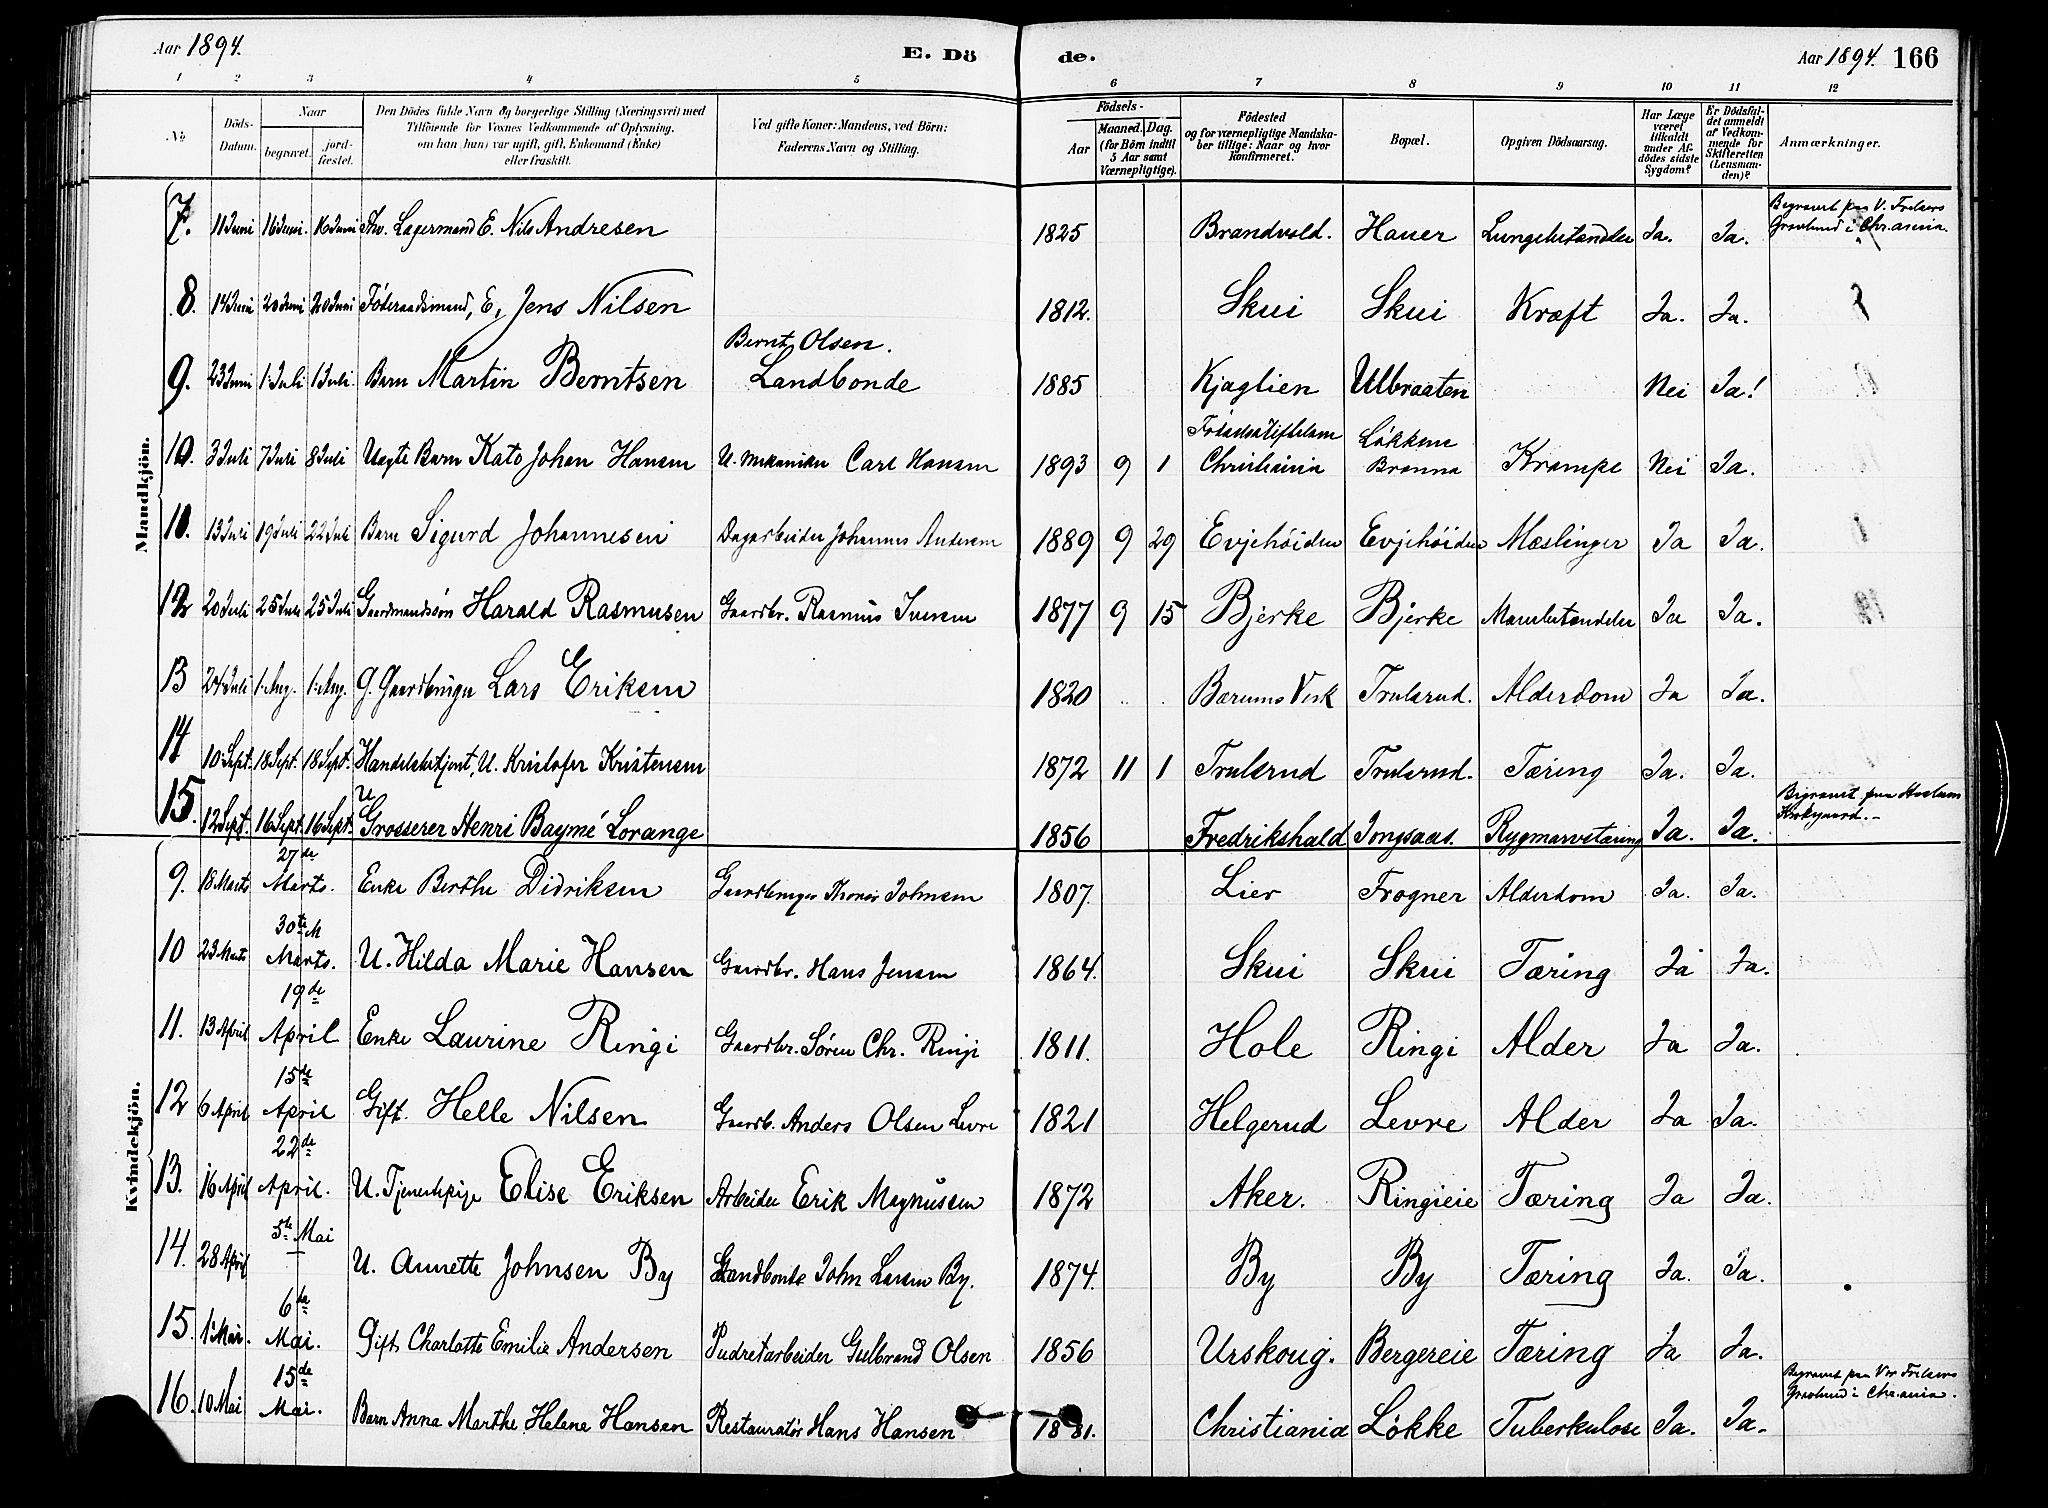 Aar 1894.
E. Dö
de.
Aar 1894. 166
1 2 3 4 5 6 7 8 9 10 11 12
No.
Döds-Datum.
Naar
begravet.
jord-fæstet.
Den Dödes fulde Navn og borgerlige Stilling (Næringsvei) med
Tilföiende for Voxnes Vedkommende af Oplysning,
om han (hun) var ugift, gift, Enkemand (Enke)
eller fraskilt.
Ved gifte Koner: Mandens, ved Börn:
Faderens Navn og Stilling.
Födsels-
Aar
Maaned. Dag.
(for Börn indtil
5 Aar samt
Værnepligtige).
Födested
og for værnepligtige Mandska-
ber tillige: Naar og hvor
konfirmeret.
Bopæl.
Opgiven Dödsaarsag.
Har Læge
været
tilkaldt
under Af-
dödes sidste
Sygdom?
Er Dödsfal-
det anmeldt
af Vedkom-
mende for
Skifteretten
(Lensman-
den)?
Anmærkninger.
Mandkjön.
7. 11 Juni 16 Juni. 16 Juni Fhv. Lagermand E. Nils Andresen 1825 Brandvold. Hauer Lungebetændelse Ja. Ja. Begravet paa V. Frelsers
Gravlund i Chr.ania.
8. 14 Juni 20 Juni 20 Juni Föderaadsmand, E, Jens Nilsen 1812. Skui Skui Kræft Ja. Ja.
Bernt Olsen.
9. 23 Juni 1. Juli 1 Juli. Barn Martin Berntsen Landbonde 1885 Kjaglien Ulbraaten Nei Ja!
Födselsstiftelsen Løkkens
10. 3 Juli 7 Juli 8 Juli Uægte Barn Kato Johan Hansen U. Mekaniker Carl Hansen 1893 9 1 Christiania Branna Krampe Nei Ja.
11. 13 Juli 19 Juli 22 Juli Barn Sigurd Johannesen Dagarbeider Johannes Andersen 1889 9 29 Evjehöiden Evjehöiden Mæslinger Ja Ja.
12 20 Juli 25 Juli 25 Juli Gaardmandssön Harald Rasmusen Gaardbr. Rasmus Iversen 1877 9 15 Bjerke Bjerke Ja Ja.
13 24 Juli 1. Aug. 1. Aug. G. Gaardbruger Lars Eriksen 1820 Bærums Verk Trulsrud. Alderdom Ja Ja.
14 10 Sept. 18 Sept. 18 Sept. Handelsbetjent, U. Kristofer Kristensen 1872 11 1 Trulsrud Trulsrud. Tæring Ja. Ja.
U
15. 12 Sept. 16 Sept. 16 Sept. Grosserer Henri Baymé Lorange 1856 Fredrikshald Jongsaas. Rygmarvstæring Ja. Ja. Begravet paa Haslum
Kirkegaard.
Kvindekjön.
9. 18 Marts 27de Marts. Enke Berthe Didriksen Gaardbruger Johnsen 1807. Lier Frogner Alderdom Ja. Ja.
10 23 Marts 30te M Marts. U. Hilda Marie Hansen Gaardbr. Hans Jensen 1864. Skui Skui Tæring Ja Ja.
11. 13 April 19de April Enke Laurine Ringi Gaardbr. Sören Chr. Ringi 1811. Hole Ringi Alder Ja Ja.
12 6 April 15de April Gift. Helle Nilsen Gaardb. Anders Olsen Levre 1821 Helgerud Levre Alder Ja Ja.
13. 16 April 22de April. U. Tjenestepige Elise Eriksen Arbeider Erik Magnussen 1872 Aker. Ringieie Tæring Ja Ja.
14. 28 April 5te Mai U. Annette Johnsen By Landbonde John Larsen By. 1874. By By Tæring Ja. Ja.
15. 1. Mai. 6de Mai. Gift Charlotte Emilie Andersen Pudretarbeider Gulbrand Olsen 1856 Urskoug. Bergereie Tæring Ja Ja.
16. 10 Mai 15de Mai. Barn Anna Marthe Helene Hansen Restauratör Hans Hansen 1881. Christiania Løkke Tuberkulose Ja. Ja. Begravet paa Vor Frelsers
Gravlund i Chr.ania.